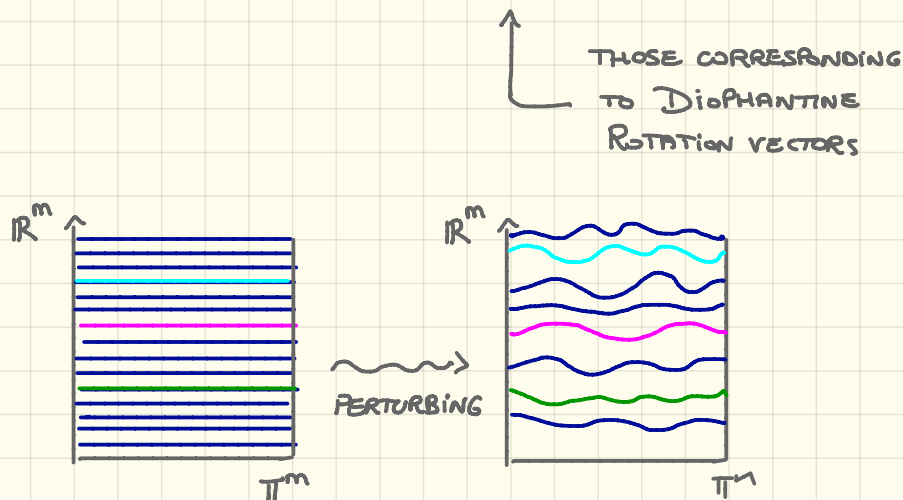 THOSE CORRESPONDING
TO DIOPHANTINE
ROTATION VECTORS
ℝᵐ
ℝᵐ
PERTURBING
𝕋ᵐ
𝕋ⁿ